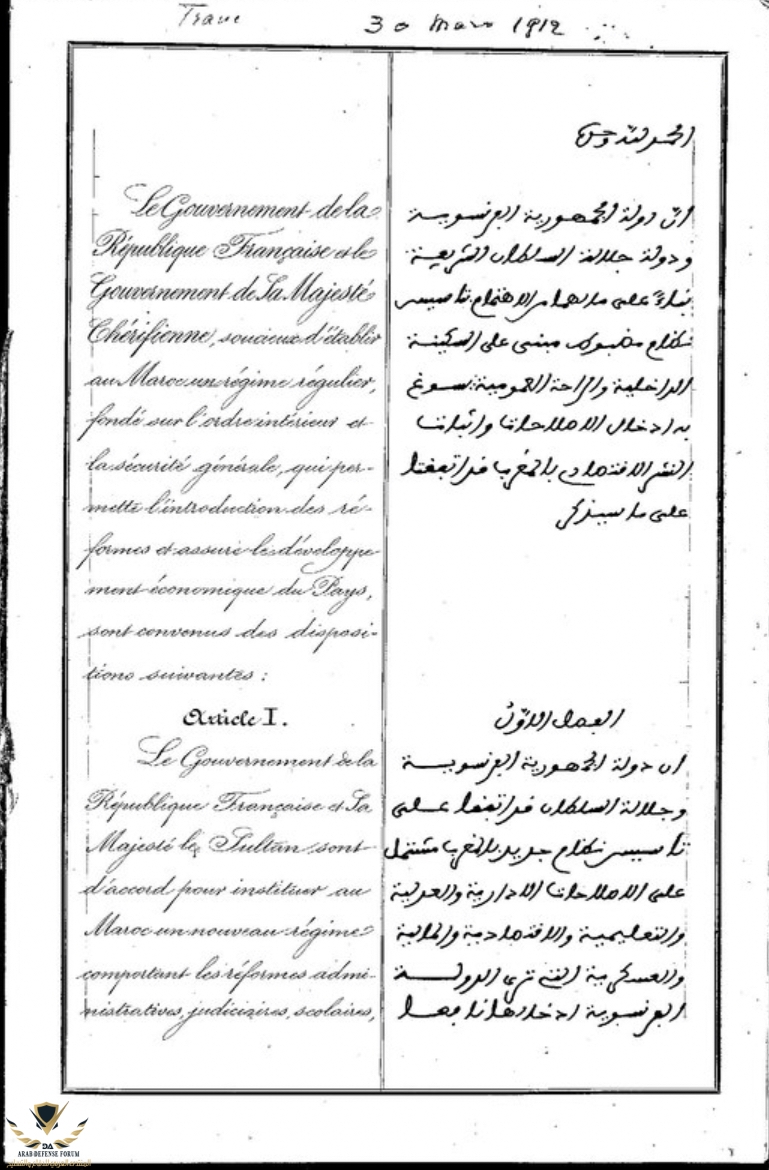 30 Mars 1912
Le Gouvernement de la
République Française et le
Gouvernement de Sa Majesté
Chérifienne, soucieux d'établir
au Maroc un régime régulier,
fondé sur l'ordre intérieur et
la sécurité générale, qui per-
mette l'introduction des ré-
formes et assure le développe-
ment économique du Pays,
sont convenus des disposi-
tions suivantes :
Article I.
Le Gouvernement de la
République Française et Sa
Majesté le Sultan sont
d'accord pour instituer au
Maroc un nouveau régime
comportant les réformes admi-
nistratives, judiciaires, scolaires,
الحمد لله وحده
انّ دولة الجمهورية الفرنسوية
ودولة جلالة السلطان الشريفة
بناءً على ما لهما من الاهتمام بتأسيس
نظام مضبوط مبني على السكينة
الداخلية والراحة العمومية يسوغ
به ادخال الاصلاحات واثبات
النشر الاقتصادي بالمغرب قد اتفقتا
على ما سيذكر
الفصل الاوّل
ان دولة الجمهورية الفرنسوية
وجلالة السلطان قد اتفقا على
تأسيس نظام جديد بالمغرب مشتمل
على الاصلاحات الادارية والعدلية
والتعليمية والاقتصادية والمالية
والعسكرية التي ترى الدولة
الفرنسوية ادخالها نافعا
DA
ARAB DEFENSE FORUM